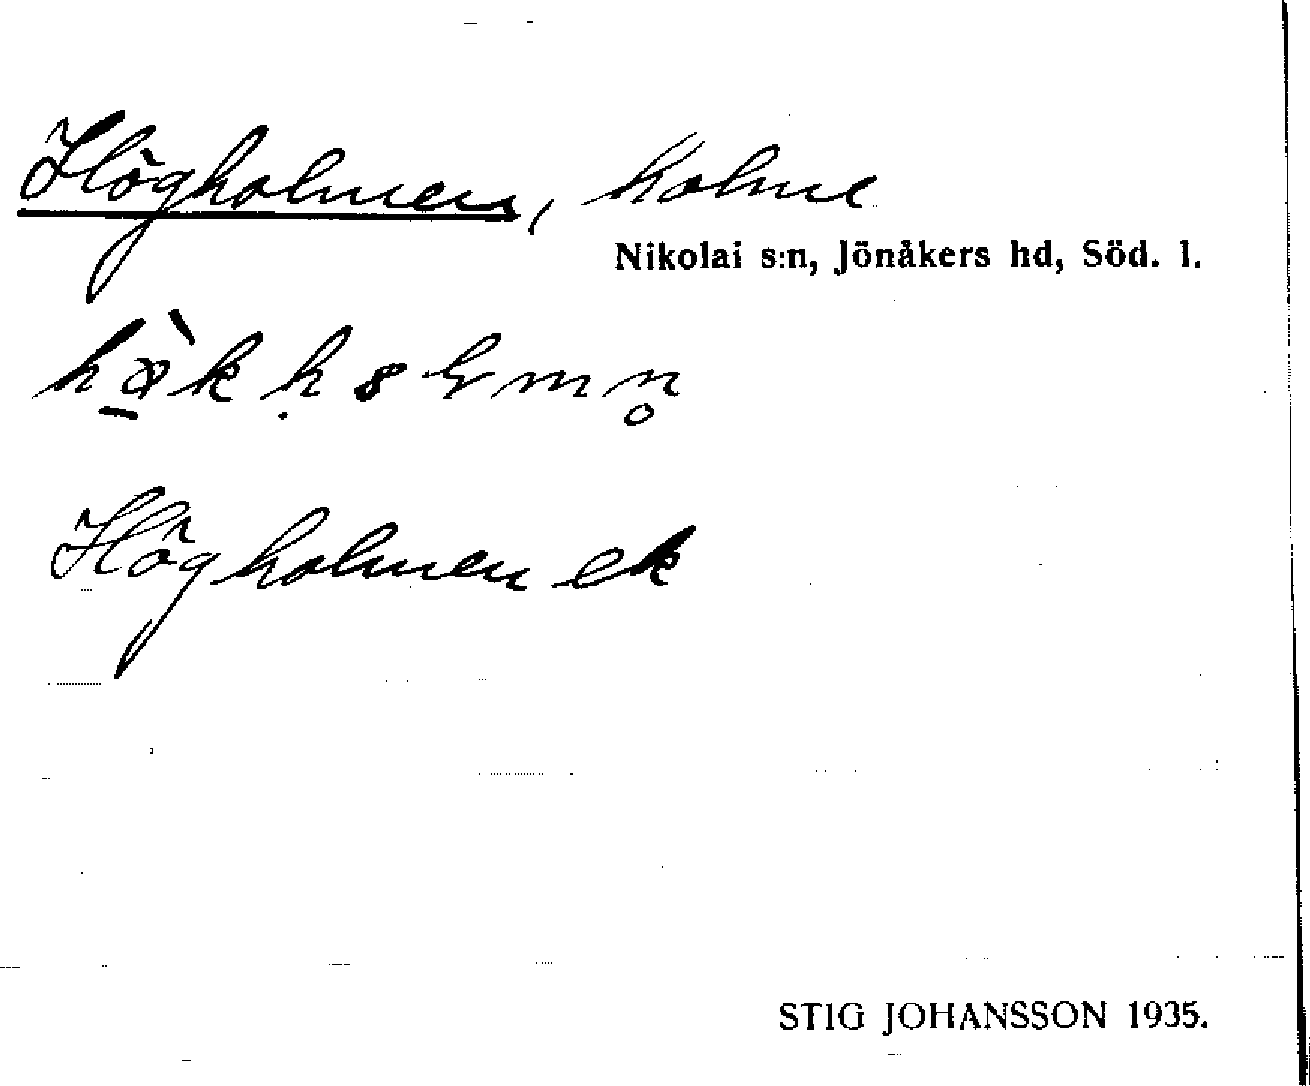 Högholmen, holme
Nikolai s:n, Jönåkers hd, Söd. l.
Högholmen ek
STIG JOHANSSON 1935.